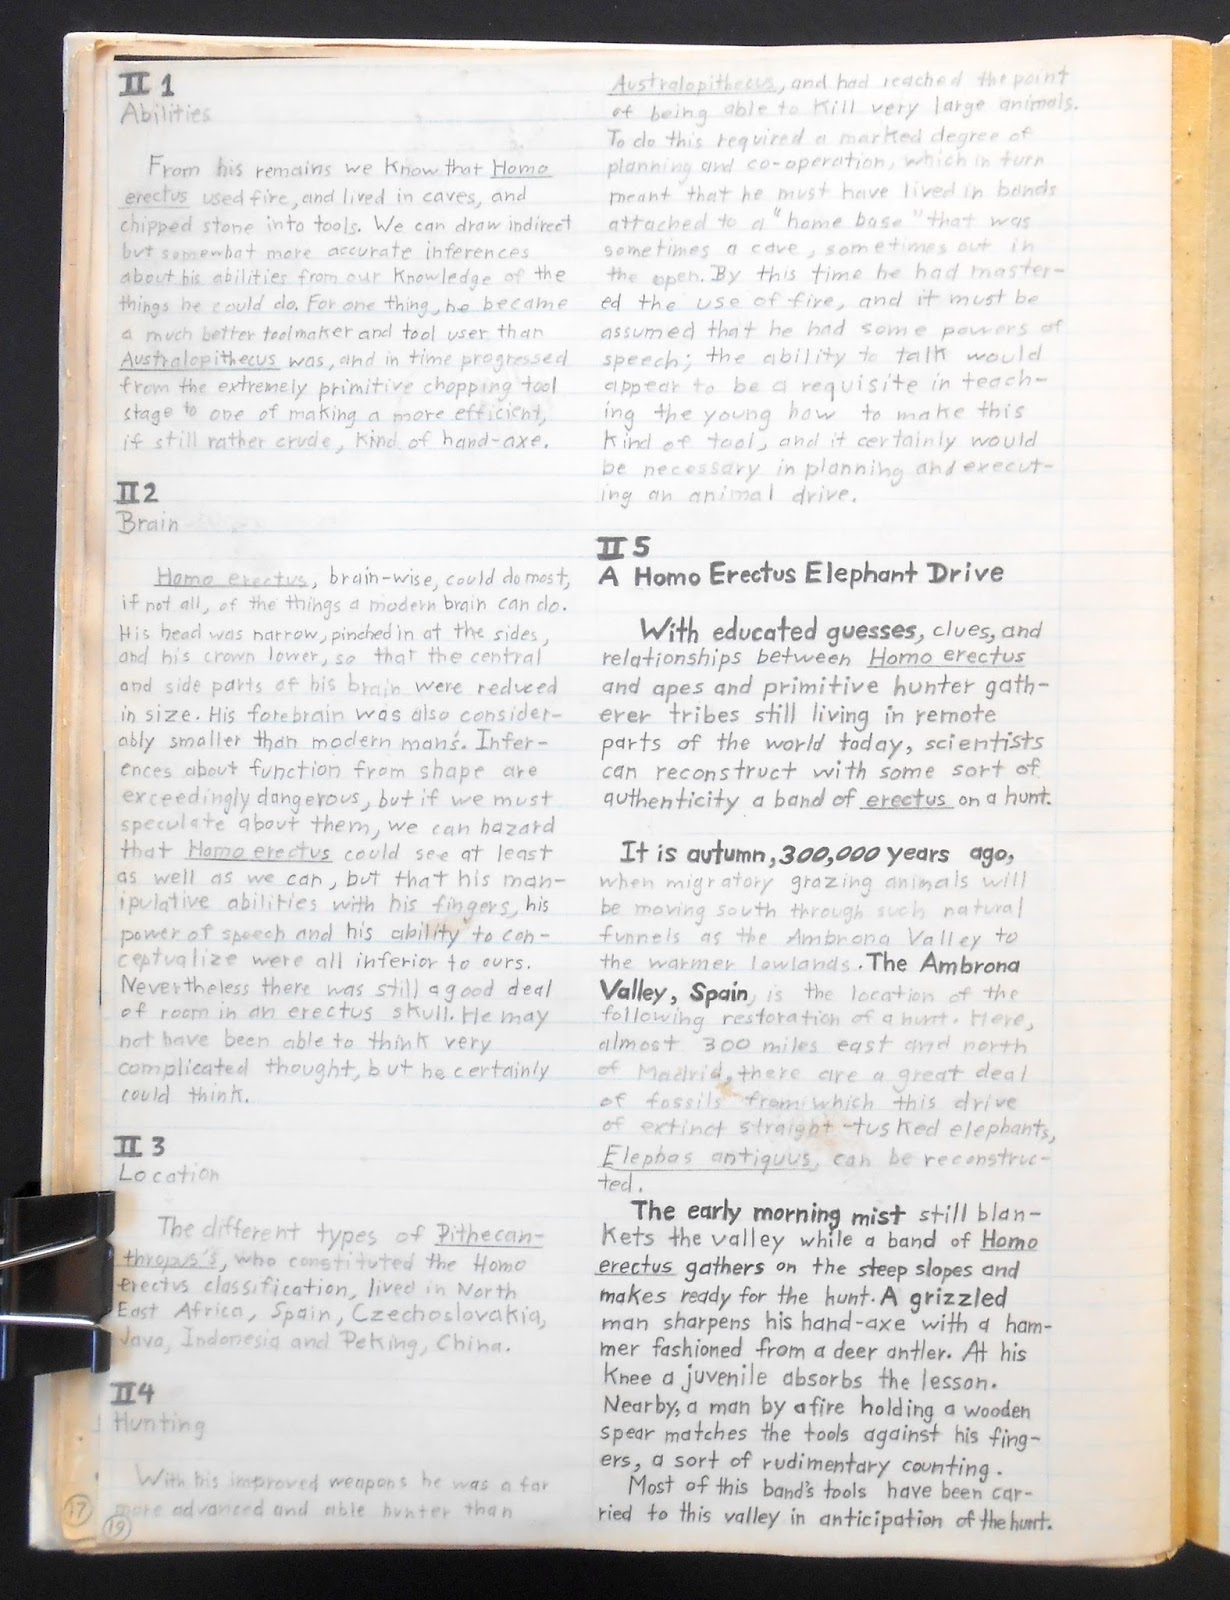 II 1
Abilities
From his remains we know that Homo
erectus used fire, and lived in caves, and
chipped stone into tools. We can draw indirect
but somewhat more accurate inferences
about his abilities from our knowledge of the
things he could do. For one thing, he became
a much better toolmaker and tool user than
Australopithecus was, and in time progressed
from the extremely primitive chopping tool
stage to one of making a more efficient,
if still rather crude, kind of hand-axe.
II 2
Brain
Homo erectus, brain-wise, could do most,
if not all, of the things a modern brain can do.
His head was narrow, pinched in at the sides,
and his crown lower, so that the central
and side parts of his brain were reduced
in size. His forebrain was also consider-
ably smaller than modern man's. Infer-
ences about function from shape are
exceedingly dangerous, but if we must
speculate about them, we can hazard
that Homo erectus could see at least
as well as we can, but that his man-
ipulative abilities with his fingers, his
power of speech and his ability to con-
ceptualize were all inferior to ours.
Nevertheless there was still a good deal
of room in an erectus skull. He may
not have been able to think very
complicated thought, but he certainly
could think.
II 3
Location
The different types of Pithecan-
thropus's, who constituted the Homo
erectus classification, lived in North
East Africa, Spain, Czechoslovakia,
Java, Indonesia and Peking, China.
II 4
Hunting
With his improved weapons he was a far
more advanced and able hunter than
17
19
Australopithecus, and had reached the point
of being able to kill very large animals.
To do this required a marked degree of
planning and co-operation, which in turn
meant that he must have lived in bands
attached to a "home base" that was
sometimes a cave, sometimes out in
the open. By this time he had master-
ed the use of fire, and it must be
assumed that he had some powers of
speech; the ability to talk would
appear to be a requisite in teach-
ing the young how to make this
kind of tool, and it certainly would
be necessary in planning and execut-
ing an animal drive.
II 5
A Homo Erectus Elephant Drive
With educated guesses, clues, and
relationships between Homo erectus
and apes and primitive hunter gath-
erer tribes still living in remote
parts of the world today, scientists
can reconstruct with some sort of
authenticity a band of erectus on a hunt.
It is autumn, 300,000 years ago,
when migratory grazing animals will
be moving south through such natural
funnels as the Ambrona Valley to
the warmer lowlands. The Ambrona
Valley, Spain, is the location of the
following restoration of a hunt. Here,
almost 300 miles east and north
of Madrid, there are a great deal
of fossils from which this drive
of extinct straight-tusked elephants,
Elephas antiquus, can be reconstruc-
ted.
The early morning mist still blan-
kets the valley while a band of Homo
erectus gathers on the steep slopes and
makes ready for the hunt. A grizzled
man sharpens his hand-axe with a ham-
mer fashioned from a deer antler. At his
knee a juvenile absorbs the lesson.
Nearby, a man by a fire holding a wooden
spear matches the tools against his fing-
ers, a sort of rudimentary counting.
Most of this band's tools have been car-
ried to this valley in anticipation of the hunt.